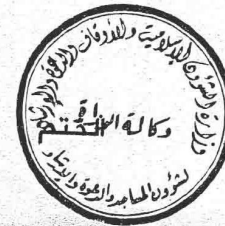 وزارة الشئون الإسلامية والأوقاف والدعوة والإرشاد
وكالة الوزارة
الختم
لشئون المساجد والدعوة والإرشاد